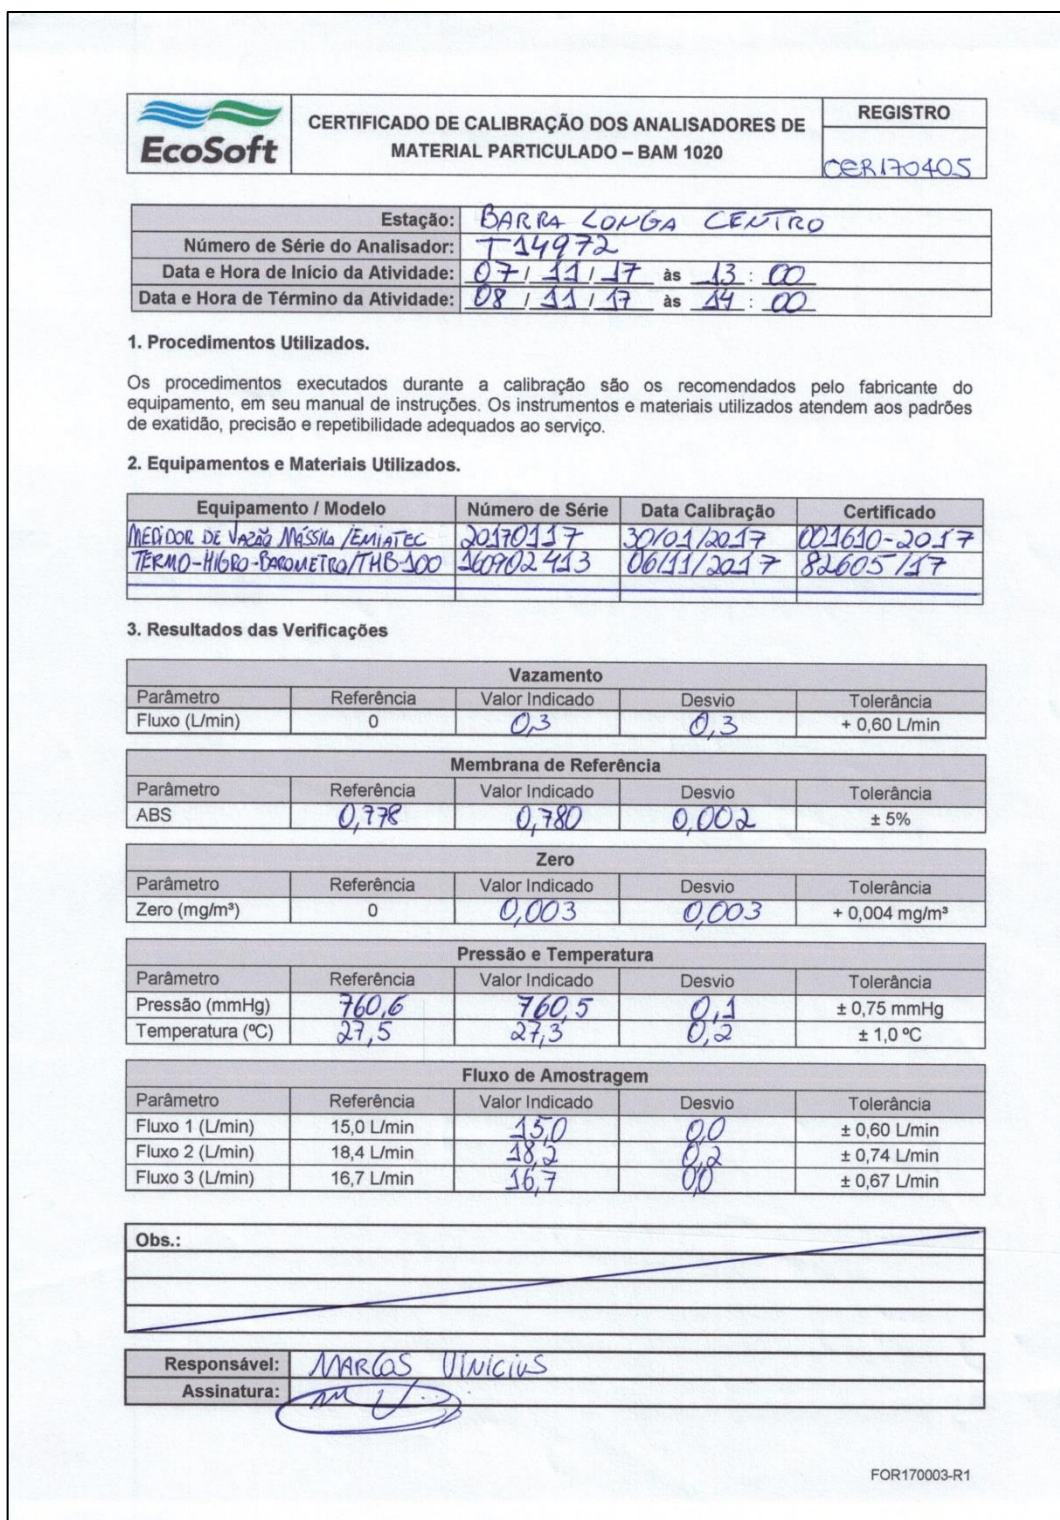 EcoSoft
CERTIFICADO DE CALIBRAÇÃO DOS ANALISADORES DE
MATERIAL PARTICULADO – BAM 1020
REGISTRO
CER170405
Estação: BARRA LONGA CENTRO
Número de Série do Analisador: T14972
Data e Hora de Início da Atividade: 07 / 11 / 17 às 13 : 00
Data e Hora de Término da Atividade: 08 / 11 / 17 às 14 : 00
1. Procedimentos Utilizados.
Os procedimentos executados durante a calibração são os recomendados pelo fabricante do
equipamento, em seu manual de instruções. Os instrumentos e materiais utilizados atendem aos padrões
de exatidão, precisão e repetibilidade adequados ao serviço.
2. Equipamentos e Materiais Utilizados.
Equipamento / Modelo Número de Série Data Calibração Certificado
MEDIDOR DE VAZÃO MÁSSICA /EMIATEC 20170117 30/01/2017 001610-2017
TERMO-HIGRO-BAROMETRO/THB-100 160902413 06/11/2017 82605/17
3. Resultados das Verificações
Vazamento
Parâmetro Referência Valor Indicado Desvio Tolerância
Fluxo (L/min) 0 0,3 0,3 + 0,60 L/min
Membrana de Referência
Parâmetro Referência Valor Indicado Desvio Tolerância
ABS 0,778 0,780 0,002 ± 5%
Zero
Parâmetro Referência Valor Indicado Desvio Tolerância
Zero (mg/m³) 0 0,003 0,003 + 0,004 mg/m³
Pressão e Temperatura
Parâmetro Referência Valor Indicado Desvio Tolerância
Pressão (mmHg) 760,6 760,5 0,1 ± 0,75 mmHg
Temperatura (ºC) 27,5 27,3 0,2 ± 1,0 ºC
Fluxo de Amostragem
Parâmetro Referência Valor Indicado Desvio Tolerância
Fluxo 1 (L/min) 15,0 L/min 15,0 0,0 ± 0,60 L/min
Fluxo 2 (L/min) 18,4 L/min 18,2 0,2 ± 0,74 L/min
Fluxo 3 (L/min) 16,7 L/min 16,7 0,0 ± 0,67 L/min
Obs.:
Responsável: MARCOS VINICIUS
Assinatura:
FOR170003-R1